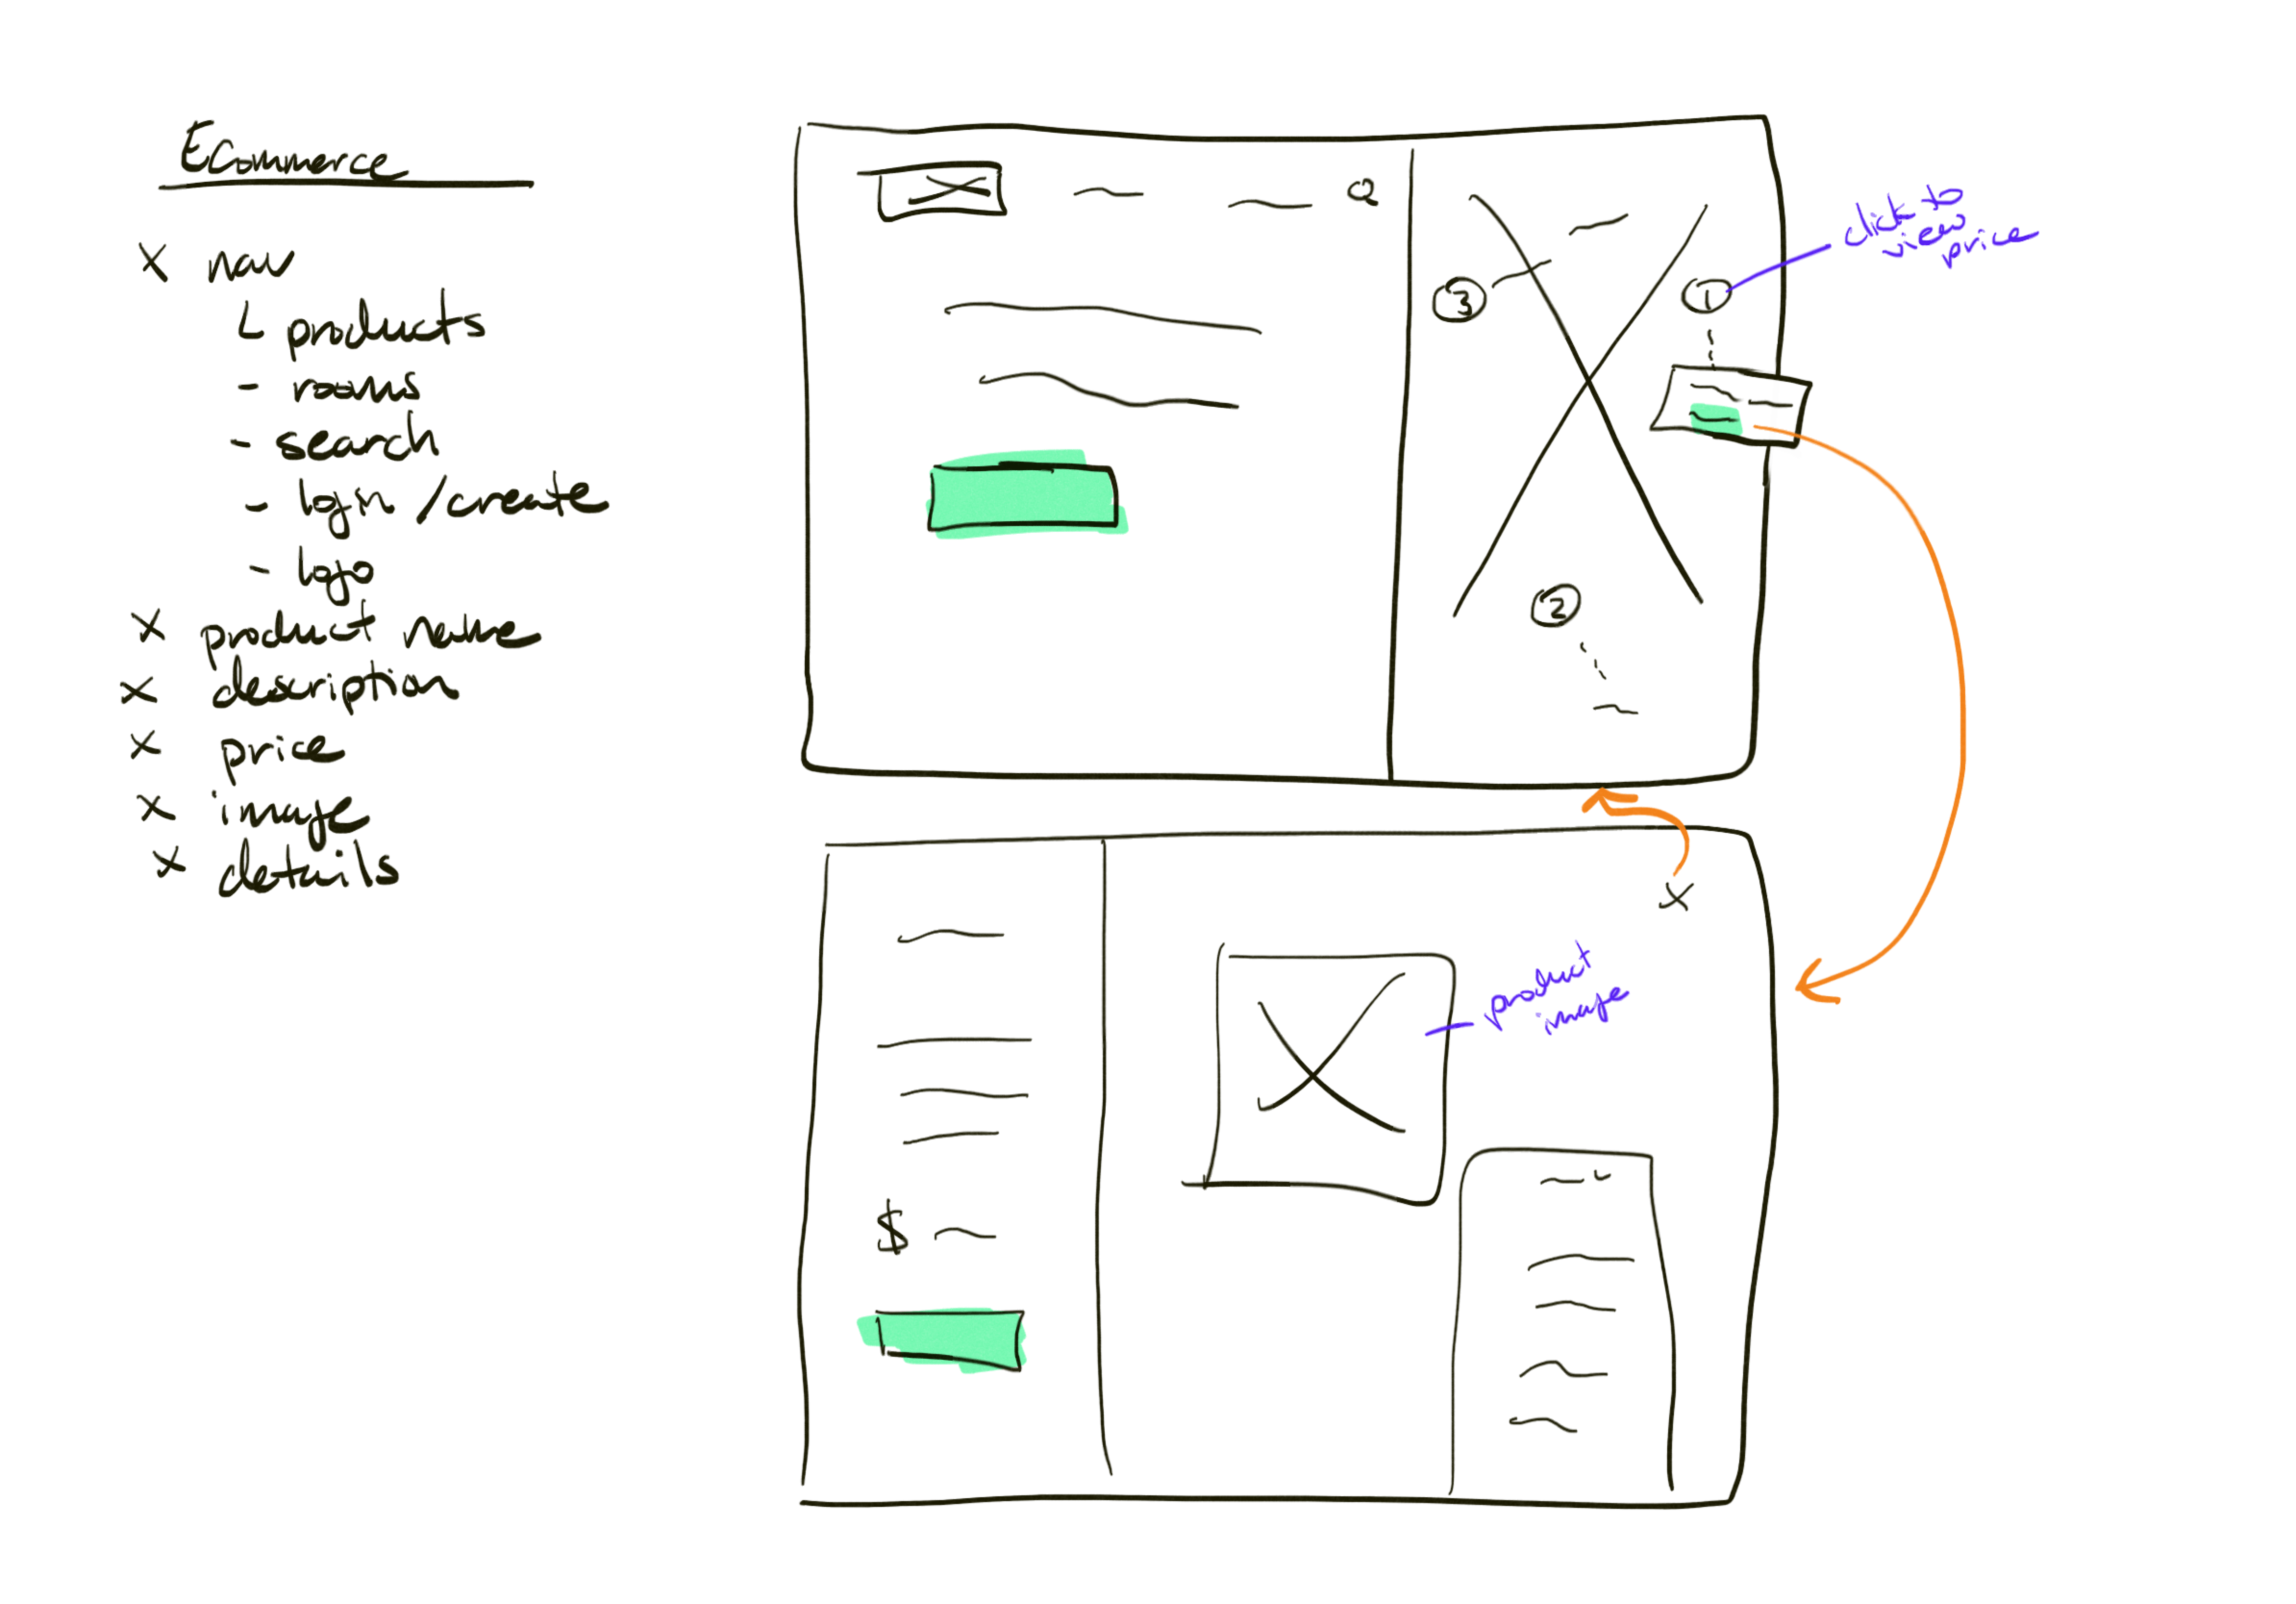 Ecommerce
x nav
└ products
- rooms
- search
- login / create
- logo
x product name
x description
x price
x image
x details
click to
view
price
3
1
2
x
product
image
$